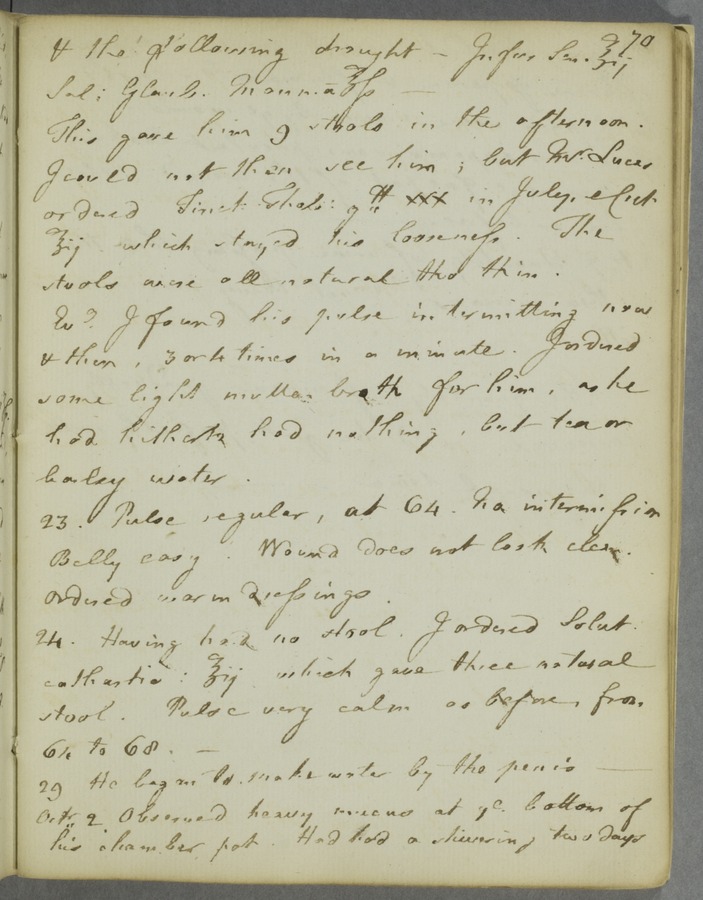 70
& the following draught – Infus Sen. ℥ij
Sal: Glaub. Manna ā ℥ſs —
This gave him 9 stools in the afternoon.
I could not then see him; but Mr. Lucas
ordered Tinct. Theb: gtt xxx in Julep. e Cret
℥ij which stayed his looseness. The
stools were all natural tho thin.
Ev? I found his pulse intermitting now
& then, 3 or 4 times in a minute. I ordered
some light mutton broth for him, as he
had hitherto had nothing, but tea or
barley water.
23. Pulse regular, at 64. No intermission
Belly easy. Wound does not look clean.
Ordered warm dressings.
24. Having had no stool. I ordered Solut.
cathartic: ℥ij which gave three natural
stool. Pulse very calm as before, from
64 to 68. —
29 He began to make water by the penis —
Octr. 2 Observed heavy mucus at ye. bottom of
his chamber pot. Had had a shivering two days